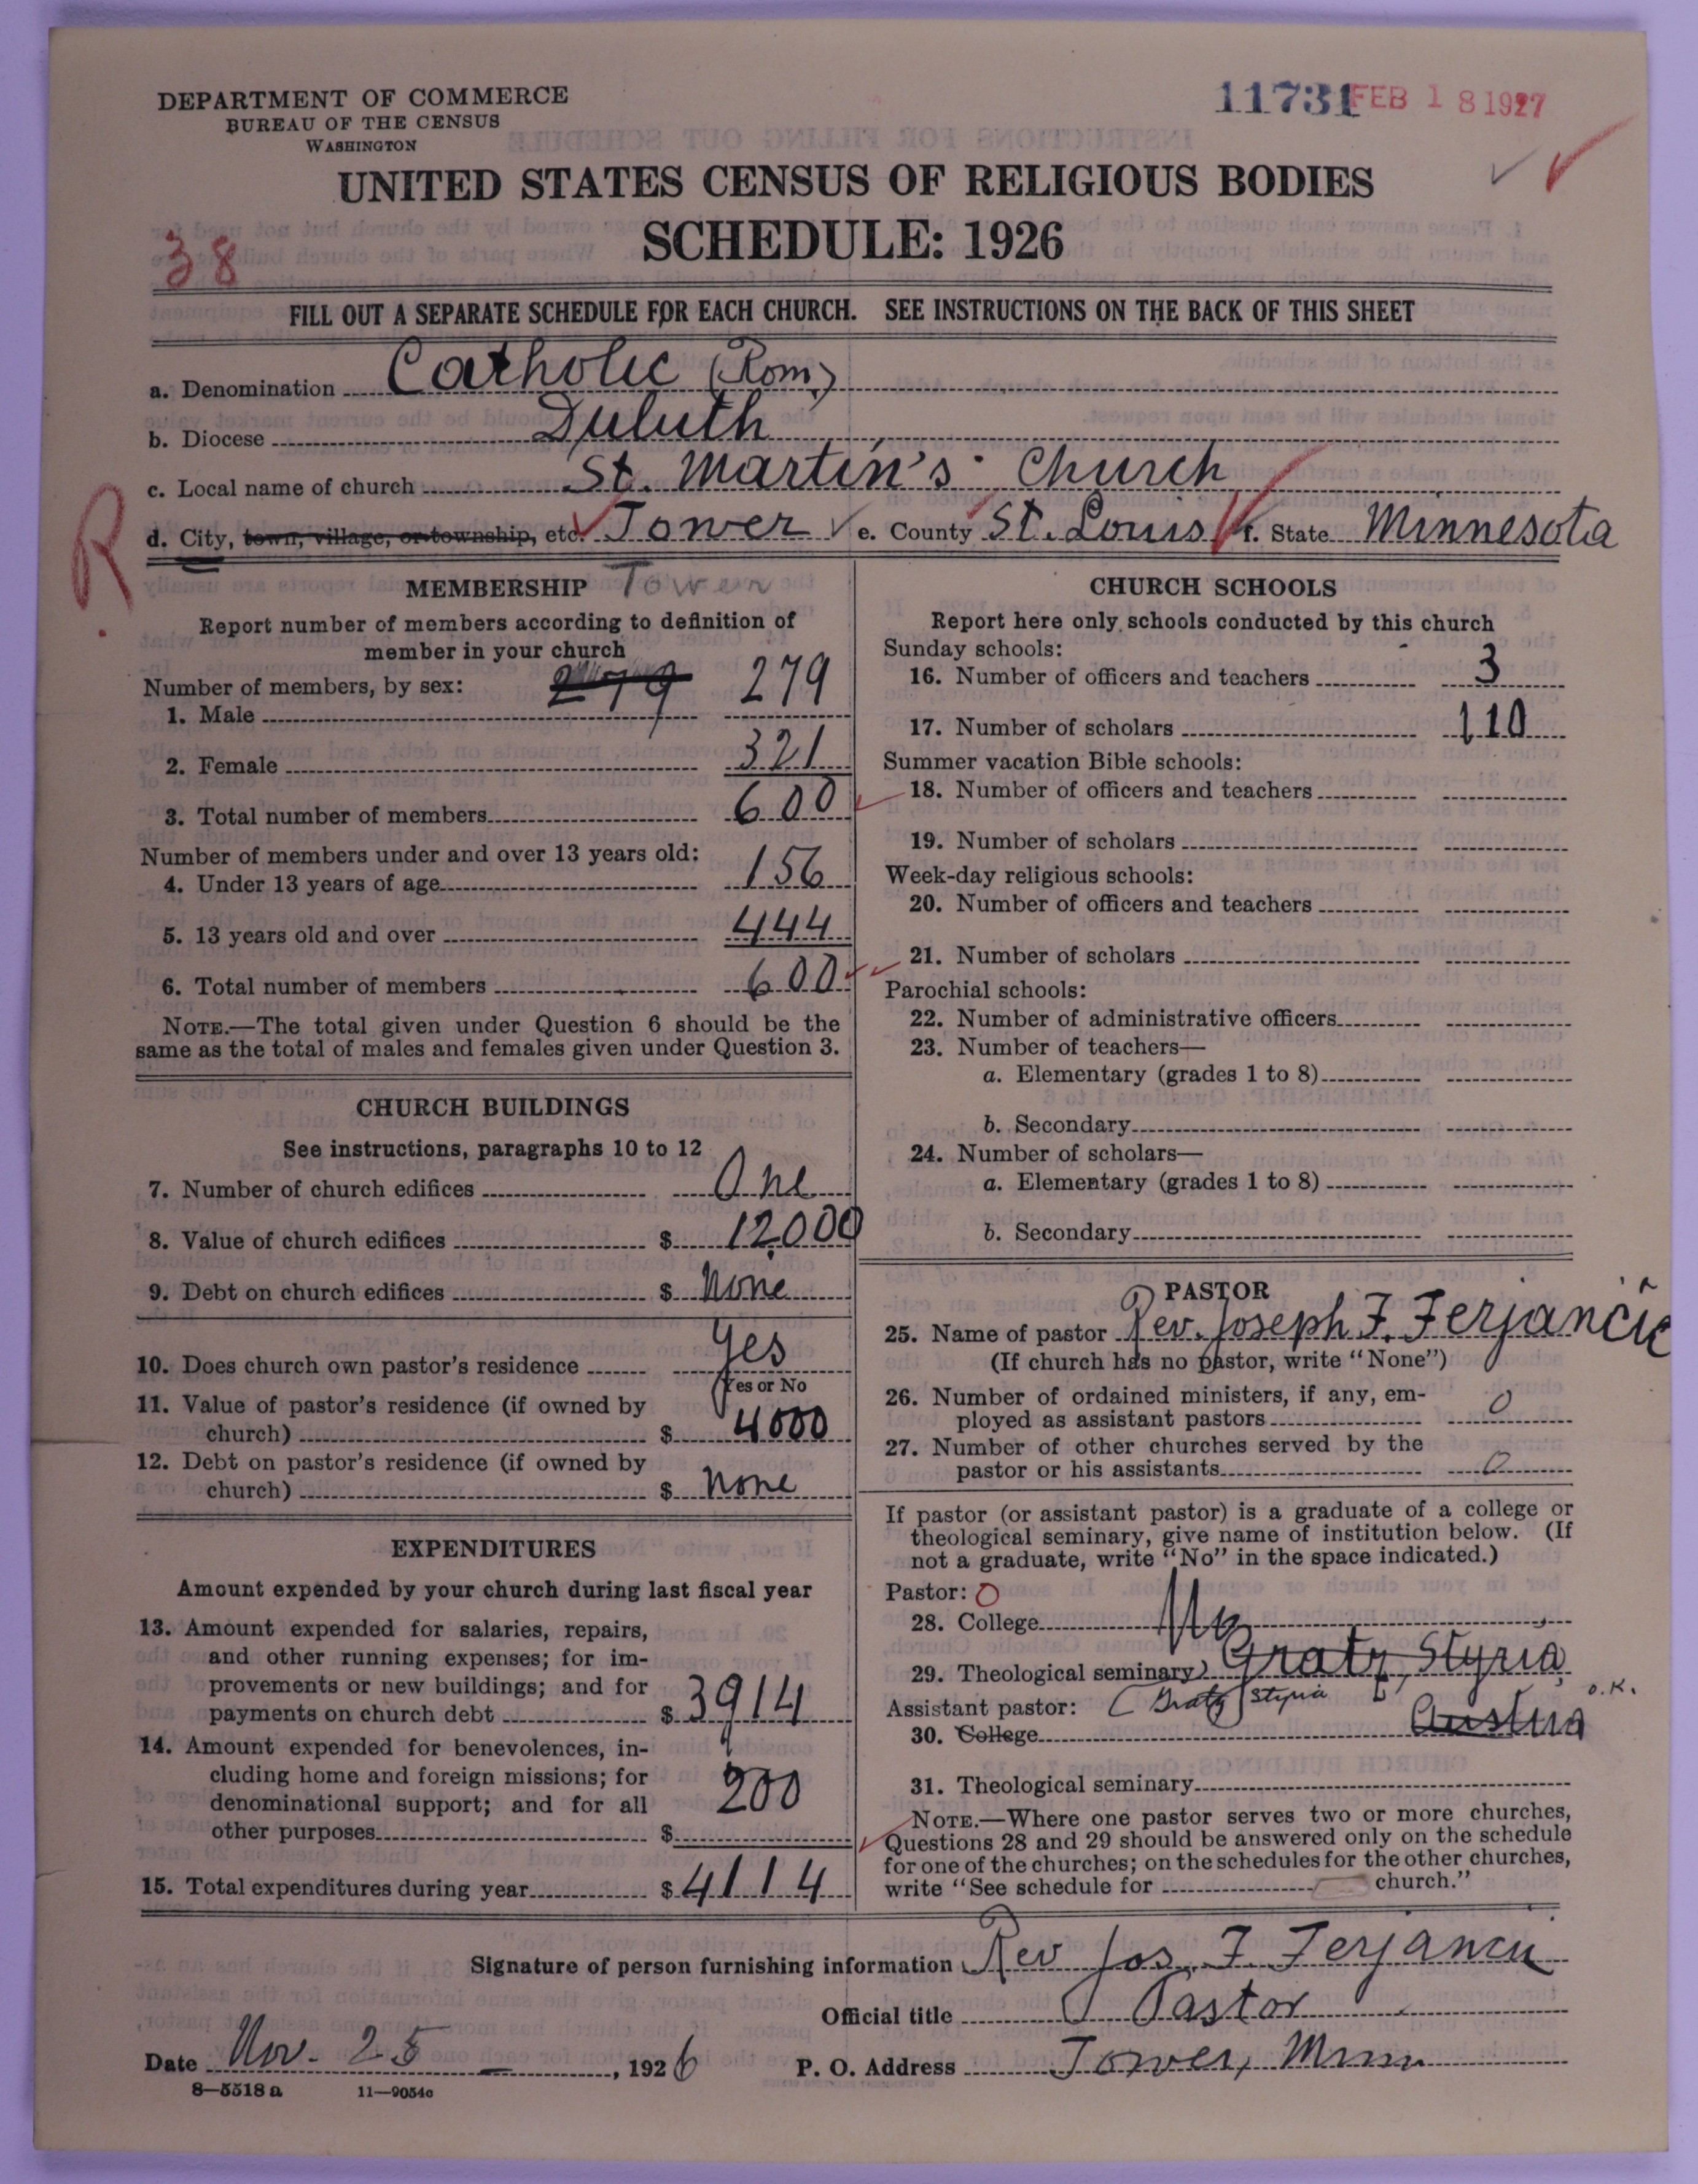 DEPARTMENT OF COMMERCE
BUREAU OF THE CENSUS
WASHINGTON
11731 FEB 18 1927
UNITED STATES CENSUS OF RELIGIOUS BODIES
SCHEDULE: 1926
38
FILL OUT A SEPARATE SCHEDULE FOR EACH CHURCH. SEE INSTRUCTIONS ON THE BACK OF THIS SHEET
a. Denomination Catholic (Rom)
b. Diocese Duluth
c. Local name of church St. Martin's Church
R
d. City, town, village, or township, etc. Tower e. County St. Louis f. State Minnesota
MEMBERSHIP Tower
Report number of members according to definition of
member in your church
Number of members, by sex:
1. Male 279 279
2. Female 321
3. Total number of members 600
Number of members under and over 13 years old:
4. Under 13 years of age 156
5. 13 years old and over 444
6. Total number of members 600
NOTE.—The total given under Question 6 should be the
same as the total of males and females given under Question 3.
CHURCH BUILDINGS
See instructions, paragraphs 10 to 12
7. Number of church edifices One
8. Value of church edifices $ 12000
9. Debt on church edifices $ None
10. Does church own pastor's residence Yes
Yes or No
11. Value of pastor's residence (if owned by
church) $ 4000
12. Debt on pastor's residence (if owned by
church) $ None
EXPENDITURES
Amount expended by your church during last fiscal year
13. Amount expended for salaries, repairs,
and other running expenses; for im-
provements or new buildings; and for
payments on church debt $ 3914
14. Amount expended for benevolences, in-
cluding home and foreign missions; for
denominational support; and for all
other purposes $ 200
15. Total expenditures during year $ 4114
CHURCH SCHOOLS
Report here only schools conducted by this church
Sunday schools:
16. Number of officers and teachers 3
17. Number of scholars 110
Summer vacation Bible schools:
18. Number of officers and teachers
19. Number of scholars
Week-day religious schools:
20. Number of officers and teachers
21. Number of scholars
Parochial schools:
22. Number of administrative officers
23. Number of teachers—
a. Elementary (grades 1 to 8)
b. Secondary
24. Number of scholars—
a. Elementary (grades 1 to 8)
b. Secondary
PASTOR
25. Name of pastor Rev. Joseph F. Ferjancic
(If church has no pastor, write "None")
26. Number of ordained ministers, if any, em-
ployed as assistant pastors 0
27. Number of other churches served by the
pastor or his assistants 0
If pastor (or assistant pastor) is a graduate of a college or
theological seminary, give name of institution below. (If
not a graduate, write "No" in the space indicated.)
Pastor: O
28. College No
29. Theological seminary Gratz, Styria
Assistant pastor: (Gratz Styria o.K.
30. College Austria
31. Theological seminary
NOTE.—Where one pastor serves two or more churches,
Questions 28 and 29 should be answered only on the schedule
for one of the churches; on the schedules for the other churches,
write "See schedule for church."
Signature of person furnishing information Rev Jos. F Ferjancic
Official title Pastor
Date Nov. 25 , 1926 P. O. Address Tower, Minn
8—5518 a 11—9054c